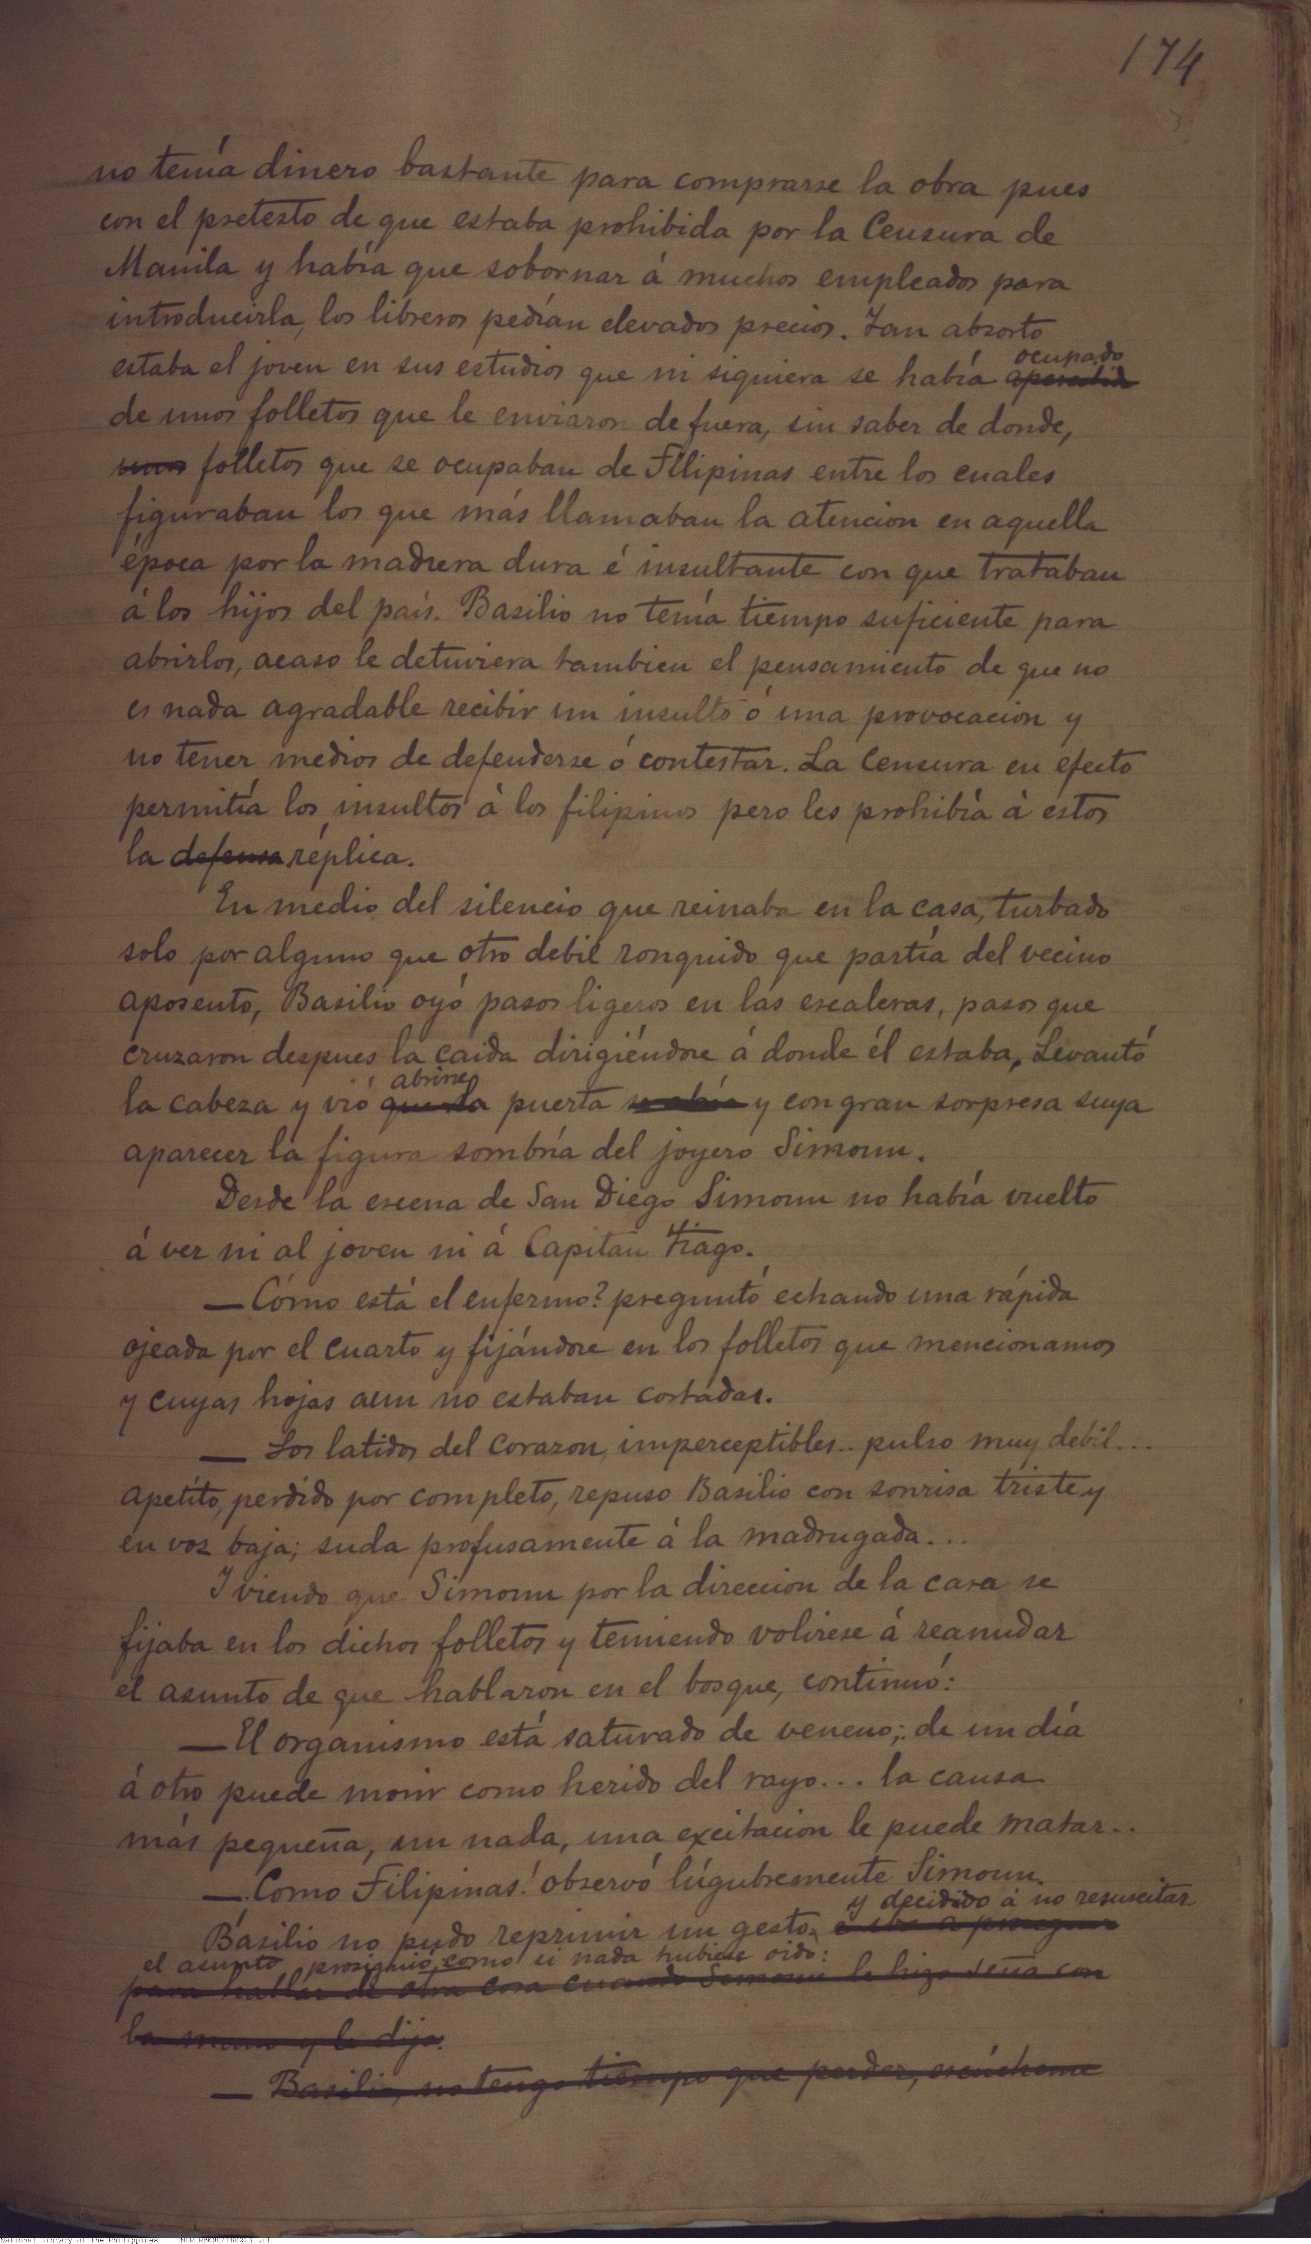 174
no tenía dinero bastante para comprarse la obra pues
con el pretesto de que estaba prohibida por la Censura de
Manila y había que sobornar á muchos empleados para
introducirla, los libreros pedían elevados precios. Tan absorto
estaba el joven en sus estudios que ni siquiera se había ocupado
de unos folletos que le enviaron de fuera, sin saber de donde,
unos folletos que se ocupaban de Filipinas entre los cuales
figuraban los que más llamaban la atencion en aquella
época por la manera dura é insultante con que trataban
á los hijos del país. Basilio no tenía tiempo suficiente para
abrirlos, acaso le detuviera tambien el pensamiento de que no
es nada agradable recibir un insulto ó una provocacion y
no tener medios de defenderse ó contestar. La Censura en efecto
permitía los insultos á los filipinos pero les prohibía á estos
la defensa réplica.
En medio del silencio que reinaba en la casa, turbado
solo por alguno que otro debil ronquido que partía del vecino
aposento, Basilio oyó pasos ligeros en las escaleras, pasos que
cruzaron despues la caida dirigiéndose á donde él estaba. Levantó
abrirse
la cabeza y vió que la puerta se abría y con gran sorpresa suya
aparecer la figura sombría del joyero Simoun.
Desde la escena de San Diego Simoun no había vuelto
á ver ni al joven ni á Capitan Tiago.
— Cómo está el enfermo? preguntó echando una rápida
ojeada por el cuarto y fijándose en los folletos que mencionamos
y cuyas hojas aun no estaban cortadas.
— Los latidos del corazon, imperceptibles.. pulso muy debil...
apetito, perdido por completo, repuso Basilio con sonrisa triste y
en voz baja; suda profusamente á la madrugada...
Y viendo que Simoun por la direccion de la cara se
fijaba en los dichos folletos y temiendo volviese á reanudar
el asunto de que hablaron en el bosque, continuó:
— El organismo está saturado de veneno; de un día
á otro puede morir como herido del rayo... la causa
más pequeña, un nada, una excitacion le puede matar..
— Como Filipinas! observó lúgubremente Simoun.
y decidido á no resuscitar
Basilio no pudo reprimir un gesto, e iba á proseguir
el asunto prosiguió como si nada hubiese oido:
para hablar de otra cosa cuando Simoun le hizo seña con
la mano y le dijo.
— Basilio, no tengo tiempo que perder, escúcheme